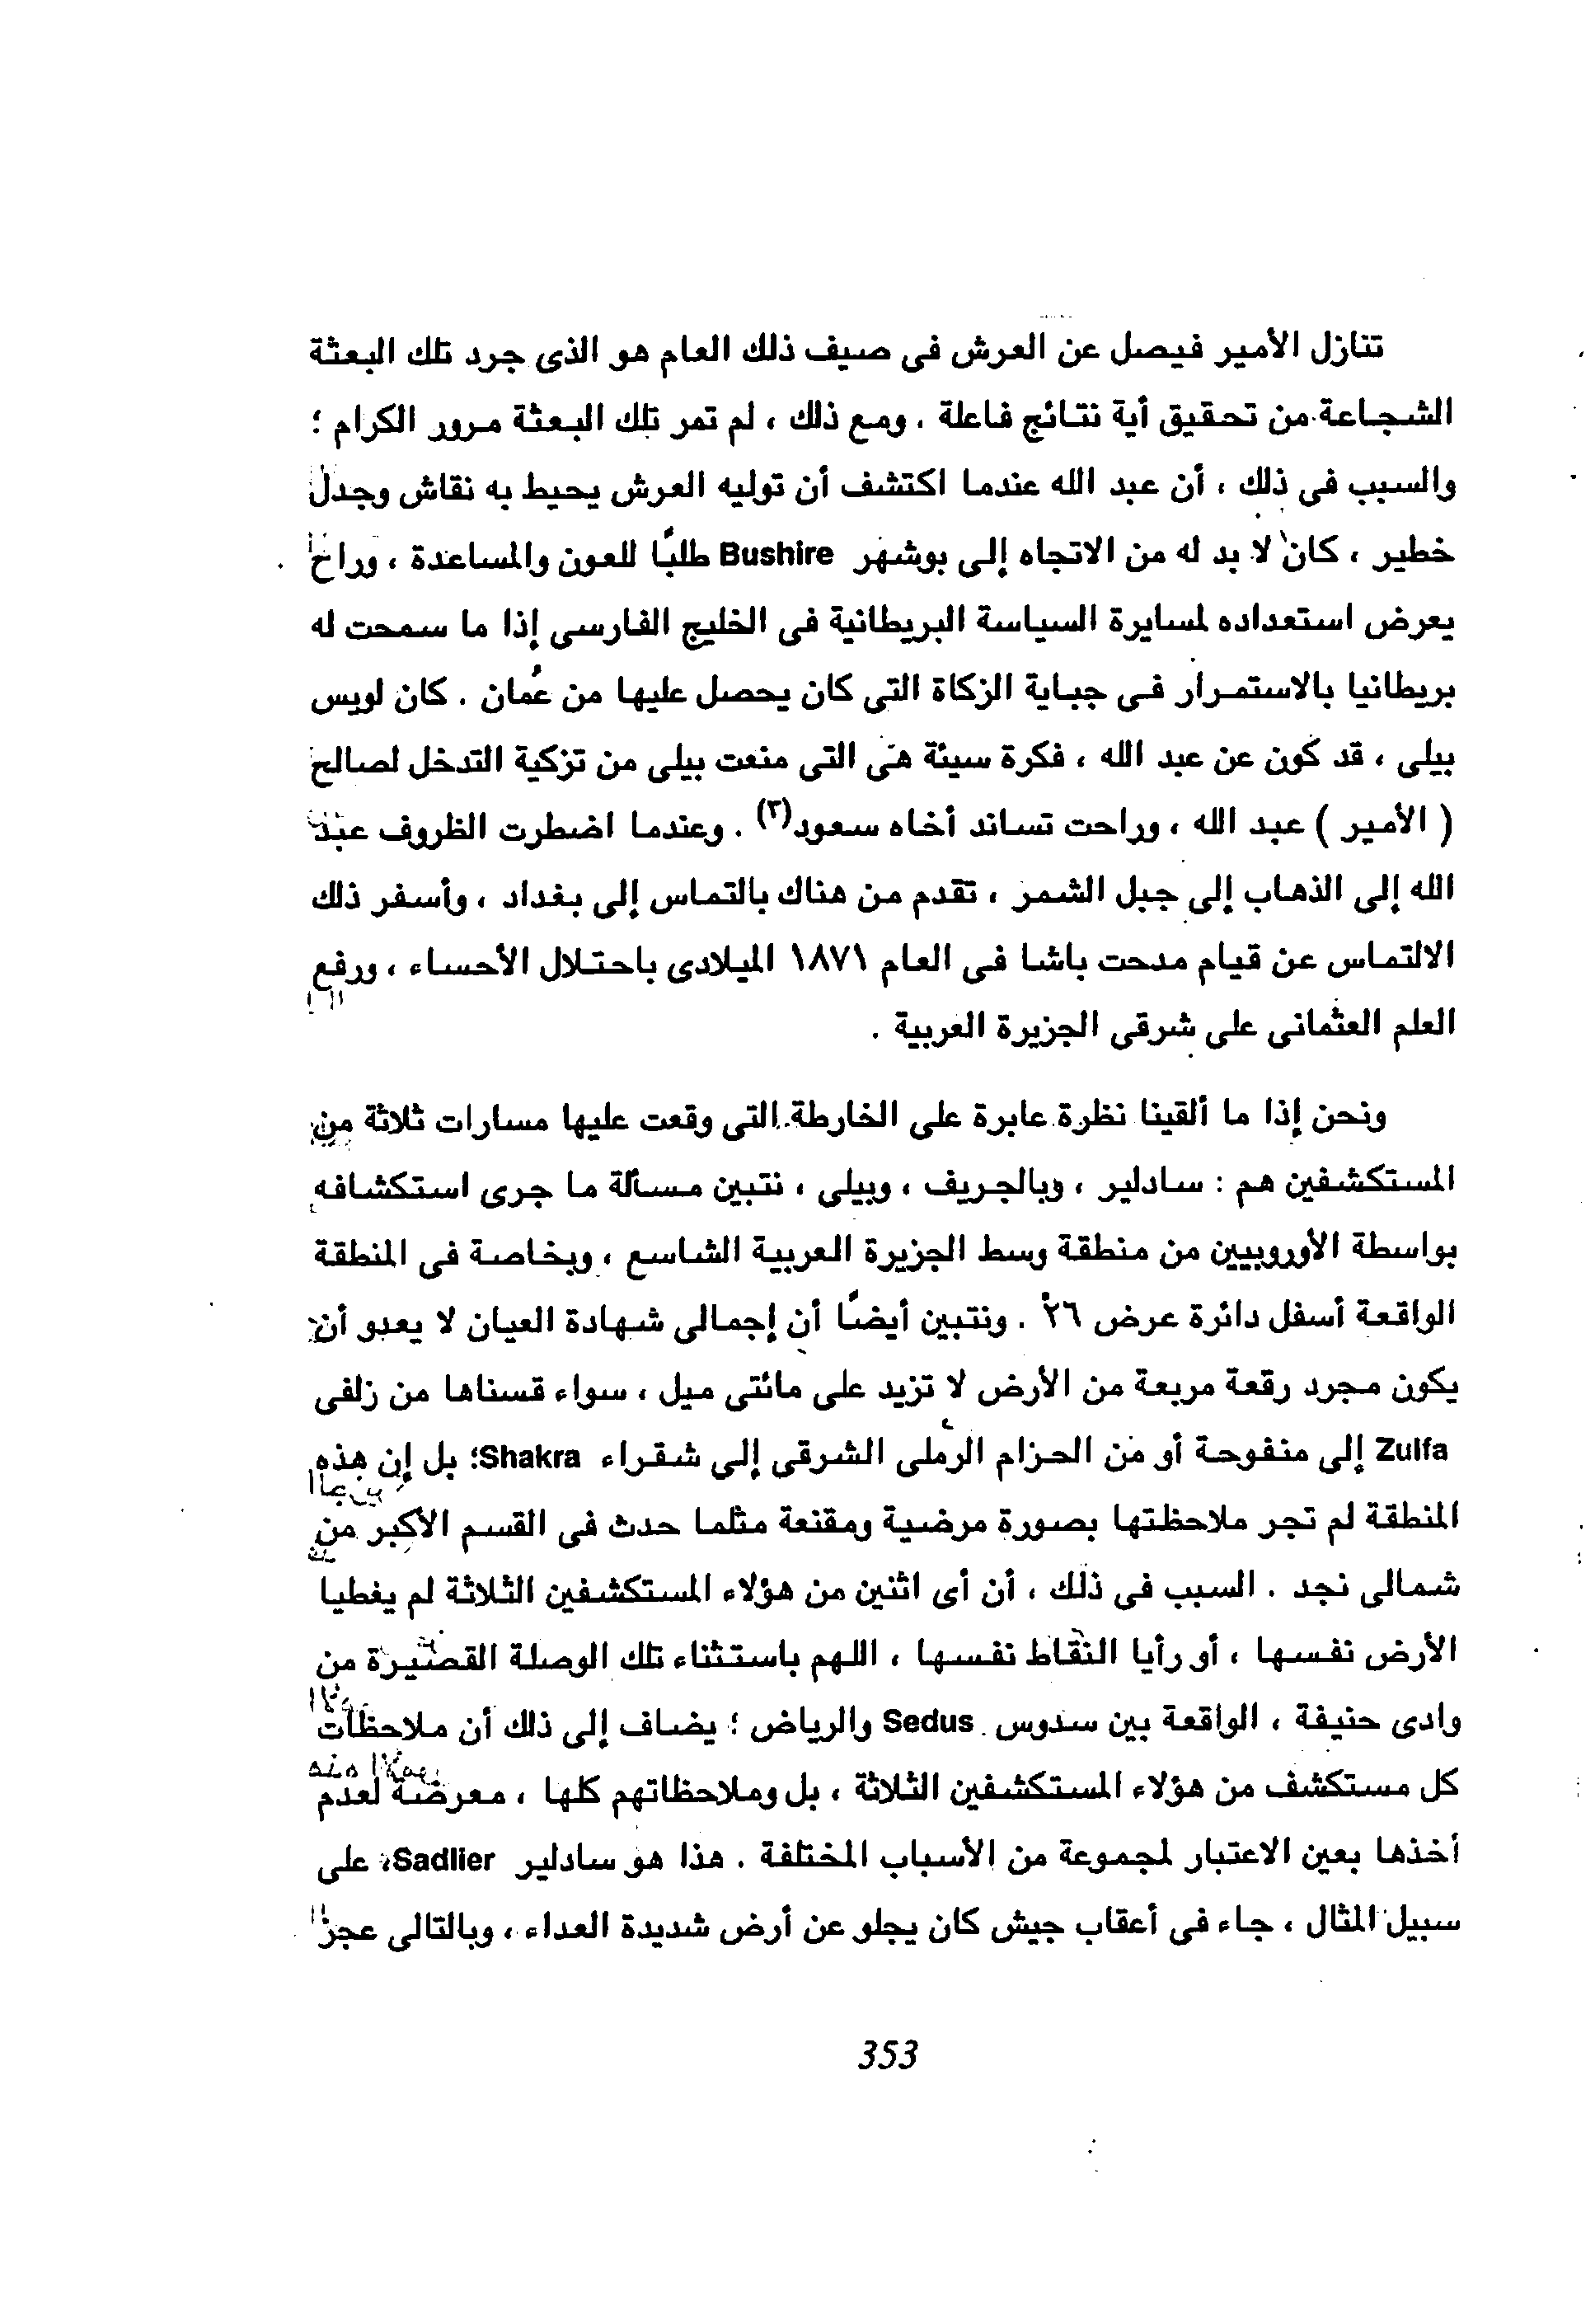 تنازل الأمير فيصل عن العرش فى صيف ذلك العام هو الذى جرد تلك البعثة
الشجاعة من تحقيق أية نتائج فاعلة . ومع ذلك ، لم تمر تلك البعثة مرور الكرام ؛
والسبب فى ذلك ، أن عبد الله عندما اكتشف أن توليه العرش يحيط به نقاش وجدل
خطير ، كان لا بد له من الاتجاه إلى بوشهر Bushire طلبًا للعون والمساعدة ، وراح
يعرض استعداده لمسايرة السياسة البريطانية فى الخليج الفارسى إذا ما سمحت له
بريطانيا بالاستمرار فى جباية الزكاة التى كان يحصل عليها من عُمان . كان لويس
بيلى ، قد كون عن عبد الله ، فكرة سيئة هى التى منعت بيلى من تزكية التدخل لصالح
( الأمير ) عبد الله ، وراحت تساند أخاه سعود(٣) . وعندما اضطرت الظروف عبد
الله إلى الذهاب إلى جبل الشمر ، تقدم من هناك بالتماس إلى بغداد ، وأسفر ذلك
الالتماس عن قيام مدحت باشا فى العام ١٨٧١ الميلادى باحتلال الأحساء ، ورفع
العلم العثمانى على شرقى الجزيرة العربية .
ونحن إذا ما ألقينا نظرة عابرة على الخارطة التى وقعت عليها مسارات ثلاثة من
المستكشفين هم : سادلير ، وبالجريف ، وبيلى ، نتبين مسألة ما جرى استكشافه
بواسطة الأوروبيين من منطقة وسط الجزيرة العربية الشاسع ، وبخاصة فى المنطقة
الواقعة أسفل دائرة عرض ٢٦ْ . ونتبين أيضًا أن إجمالى شهادة العيان لا يعدو أن
يكون مجرد رقعة مربعة من الأرض لا تزيد على مائتى ميل ، سواء قسناها من زلفى
Zulfa إلى منفوحة أو من الحزام الرملى الشرقى إلى شقراء Shakra؛ بل إن هذه
المنطقة لم تجر ملاحظتها بصورة مرضية ومقنعة مثلما حدث فى القسم الأكبر من
شمالى نجد . السبب فى ذلك ، أن أى اثنين من هؤلاء المستكشفين الثلاثة لم يغطيا
الأرض نفسها ، أو رأيا النقاط نفسها ، اللهم باستثناء تلك الوصلة القصيرة من
وادى حنيفة ، الواقعة بين سدوس Sedus والرياض ؛ يضاف إلى ذلك أن ملاحظات
كل مستكشف من هؤلاء المستكشفين الثلاثة ، بل وملاحظاتهم كلها ، معرضة لعدم
أخذها بعين الاعتبار لمجموعة من الأسباب المختلفة . هذا هو سادلير Sadlier، على
سبيل المثال ، جاء فى أعقاب جيش كان يجلو عن أرض شديدة العداء ، وبالتالى عجز
353